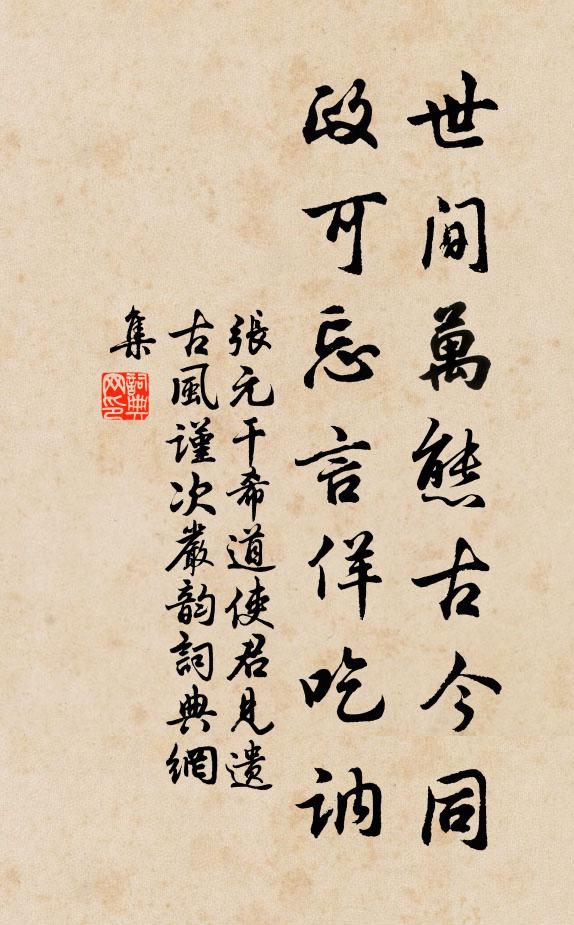 世間萬態古今同
政可忘言佯吃訥
張元干希道使君見遺
古風謹次嚴韵詞典網
集
詞典網印